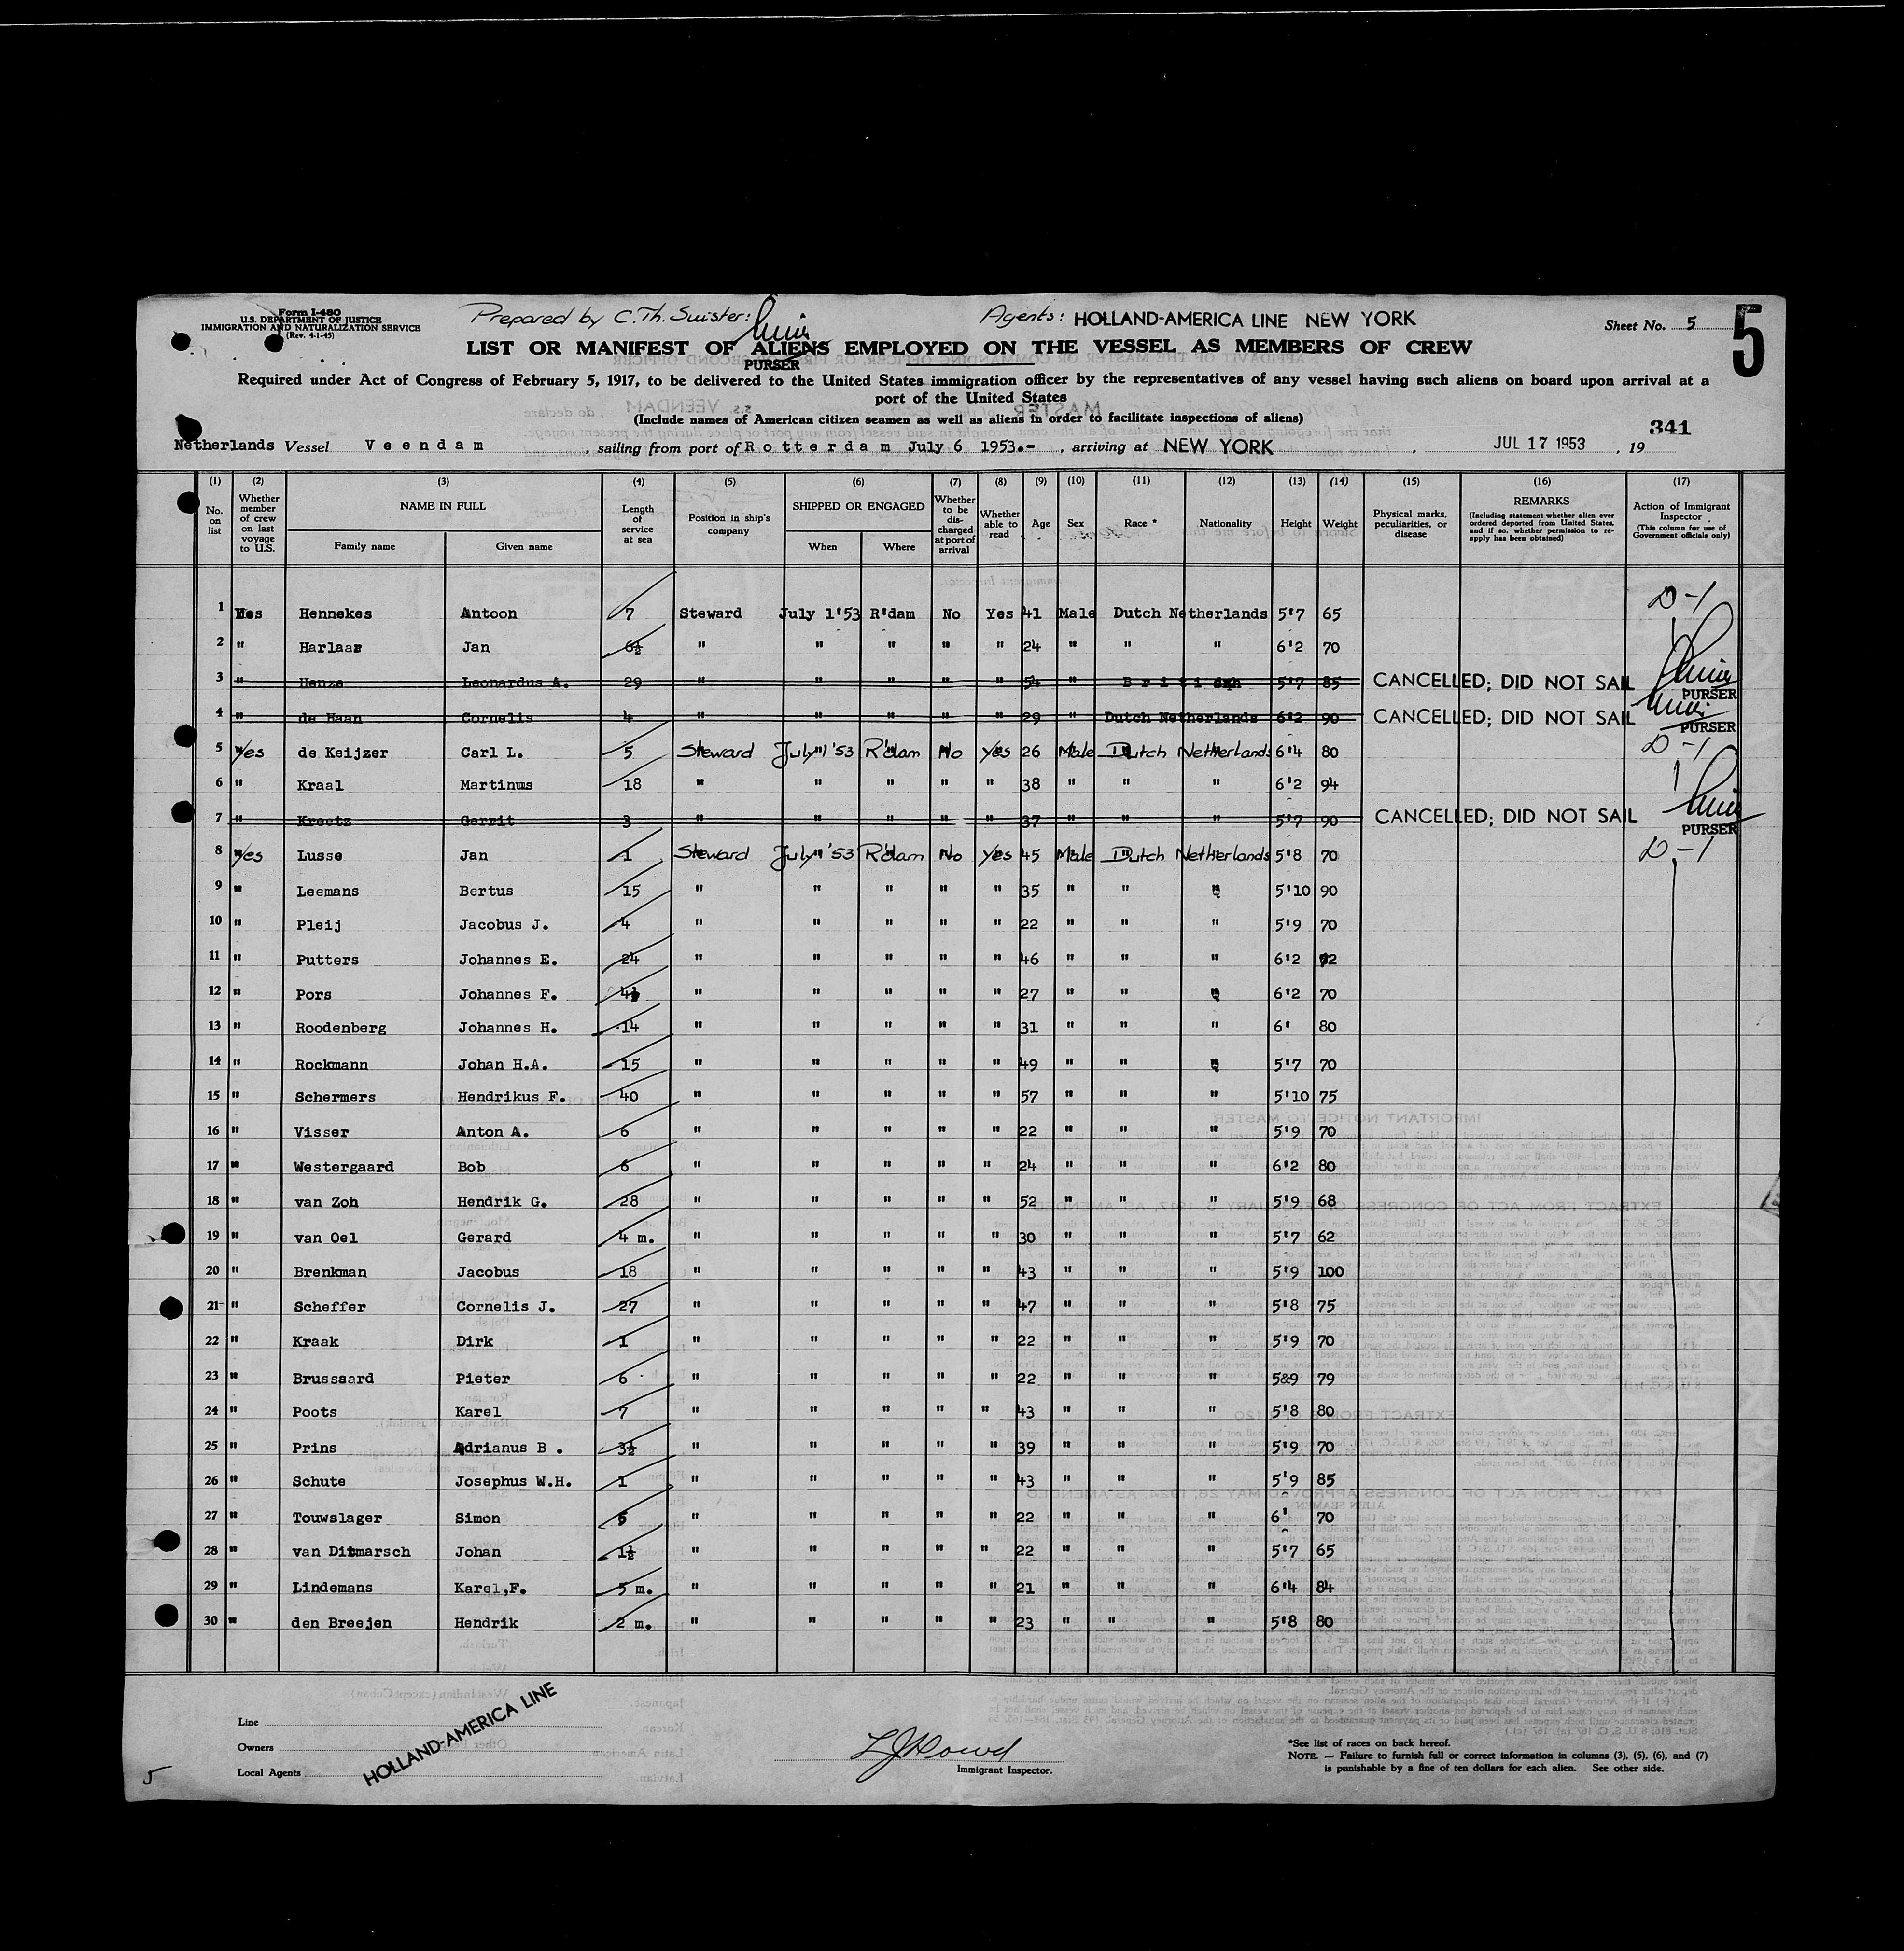 Form I-480
U.S. DEPARTMENT OF JUSTICE
IMMIGRATION AND NATURALIZATION SERVICE
(Rev. 4-1-45)
Prepared by C. Th. Suister:
Agents: HOLLAND-AMERICA LINE NEW YORK
Sheet No. 5
5
LIST OR MANIFEST OF ALIENS EMPLOYED ON THE VESSEL AS MEMBERS OF CREW
PURSER
Required under Act of Congress of February 5, 1917, to be delivered to the United States immigration officer by the representatives of any vessel having such aliens on board upon arrival at a
port of the United States
(Include names of American citizen seamen as well as aliens in order to facilitate inspections of aliens)
341
Netherlands Vessel Veendam , sailing from port of Rotterdam July 6 1953.- , arriving at NEW YORK , JUL 17 1953 , 19
(1) (2) (3) (4) (5) (6) (7) (8) (9) (10) (11) (12) (13) (14) (15) (16) (17)
No. on list
Whether member of crew on last voyage to U.S.
NAME IN FULL
Family name
Given name
Length of service at sea
Position in ship's company
SHIPPED OR ENGAGED
When
Where
Whether to be discharged at port of arrival
Whether able to read
Age
Sex
Race *
Nationality
Height
Weight
Physical marks, peculiarities, or disease
REMARKS
(Including statement whether alien ever ordered deported from United States, and if so, whether permission to reapply has been obtained)
Action of Immigrant Inspector
(This column for use of Government officials only)
1 Yes Hennekes Antoon 7 Steward July 1'53 R'dam No Yes 41 Male Dutch Netherlands 5'7 65 D-1
2 " Harlaar Jan 6½ " " " " " 24 " " " 6'2 70
3 " Henze Leonardus A. 29 " " " " " 54 " British 5'7 85 CANCELLED; DID NOT SAIL PURSER
4 " de Haan Cornelis 4 " " " " " 29 " Dutch Netherlands 6'2 90 CANCELLED; DID NOT SAIL PURSER
5 Yes de Keijzer Carl L. 5 Steward July 1 '53 R'dam No Yes 26 Male Dutch Netherlands 6'4 80 D-1
6 " Kraal Martinus 18 " " " " " 38 " " " 6'2 94
7 " Kreetz Gerrit 3 " " " " " 37 " " " 5'7 90 CANCELLED; DID NOT SAIL PURSER
8 Yes Lusse Jan 1 Steward July 1 '53 R'dam No Yes 45 Male Dutch Netherlands 5'8 70 D-1
9 " Leemans Bertus 15 " " " " " 35 " " " 5'10 90
10 " Pleij Jacobus J. 4 " " " " " 22 " " " 5'9 70
11 " Putters Johannes E. 24 " " " " " 46 " " " 6'2
12 " Pors Johannes F. 4½ " " " " " 27 " " " 6'2 70
13 " Roodenberg Johannes H. 14 " " " " " 31 " " " 6' 80
14 " Rockmann Johan H.A. 15 " " " " " 49 " " " 5'7 70
15 " Schermers Hendrikus F. 40 " " " " " 57 " " " 5'10 75
16 " Visser Anton A. 6 " " " " " 22 " " " 5'9 70
17 " Westergaard Bob 6 " " " " " 24 " " " 6'2 80
18 " van Zoh Hendrik G. 28 " " " " " 52 " " " 5'9 68
19 " van Oel Gerard 4 m. " " " " " 30 " " " 5'7 62
20 " Brenkman Jacobus 18 " " " " " 43 " " " 5'9 100
21 " Scheffer Cornelis J. 27 " " " " " 47 " " " 5'8 75
22 " Kraak Dirk 1 " " " " " 22 " " " 5'9 70
23 " Brussaard Pieter 6 " " " " " 22 " " " 5&9 79
24 " Poots Karel 7 " " " " " 43 " " " 5'8 80
25 " Prins Adrianus B . 3½ " " " " " 39 " " " 5'9 70
26 " Schute Josephus W.H. 1 " " " " " 43 " " " 5'9 85
27 " Touwslager Simon 5 " " " " " 22 " " " 6' 70
28 " van Ditmarsch Johan 1½ " " " " " 22 " " " 5'7 65
29 " Lindemans Karel,F. 5 m. " " " " " 21 " " " 6'4 84
30 " den Breejen Hendrik 2 m. " " " " " 23 " " " 5'8 80
Line
Owners
Local Agents
HOLLAND-AMERICA LINE
5
Immigrant Inspector.
*See list of races on back hereof.
NOTE. — Failure to furnish full or correct information in columns (3), (5), (6), and (7)
is punishable by a fine of ten dollars for each alien. See other side.